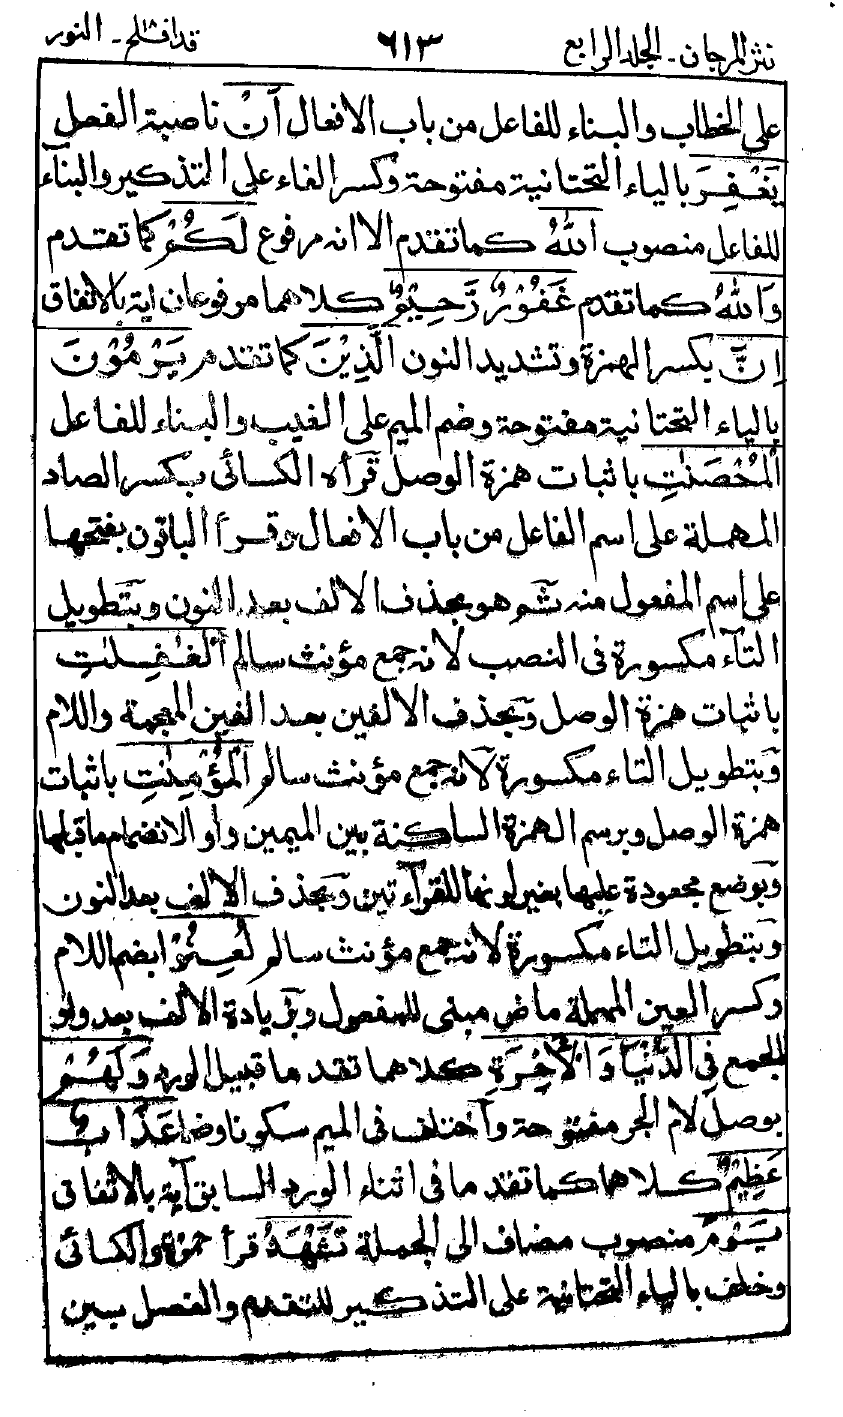 نثر المرجان۔ الجلد الرابع ٦١٣ قد افلح ١٨۔ النور
على الخطاب والبناء للفاعل من باب الافعال اَنْ ناصبة الفعل
يَغْفِرَ بالياء التحتانية مفتوحة وكسر الفاء على التذكير والبناء
للفاعل منصوب اللهُ كما تقدم الا انه مرفوع لَكُمْ كما تقدم
وَاللهُ كما تقدم غَفُوْرٌ رَّحِيْمٌ كلاهما مرفوعان اية بالاتفاق
اِنَّ بكسر الهمزة وتشديد النون الَّذِيْنَ كما تقدم يَرْمُوْنَ
بالياء التحتانية مفتوحة وضم الميم على الغيب والبناء للفاعل
الْمُحْصَنٰتِ باثبات همزة الوصل قرأه الكسائى بكسر الصاد
المهملة على اسم الفاعل من باب الافعال وقرأ الباقون بفتحها
على اسم المفعول منه ثم هو بحذف الالف بعد النون وبتطويل
التآء مكسورة فى النصب لانه جمع مؤنث سالم الْغٰفِلٰتِ
باثبات همزة الوصل وبحذف الالفين بعد الغين المعجمة واللام
وبتطويل التاء مكسورة لانه جمع مؤنث سالم الْمُؤْمِنٰتِ باثبات
همزة الوصل وبرسم الهمزة الساكنة بين الميمين واوا لانضمام ماقبلها
وبوضع مجعودة عليها بغير لونها للقرآءتين وبحذف الالف بعد النون
وبتطويل التاء مكسورة لانه جمع مؤنث سالم لُعِنُوْا بضم اللام
وكسر العين المهملة ماض مبنى للمفعول وبزيادة الالف بعد واو
الجمع فِى الدُّنْيَا وَالْاٰخِرَةِ كلاهما تقدما قبيل الورد وَلَهُمْ
بوصل لام الجر مفتوحة واختلف فى الميم سكونا وضما عَذَابٌ
عَظِيْمٌ كلاهما كما تقدما فى اثناء الورد السابق آية بالاتفاق
يَوْمَ منصوب مضاف الى الجملة تَشْهَدُ قرأ حمزة والكسائى
وخلف بالياء التحتانية على التذكير للتقدم والفصل بين